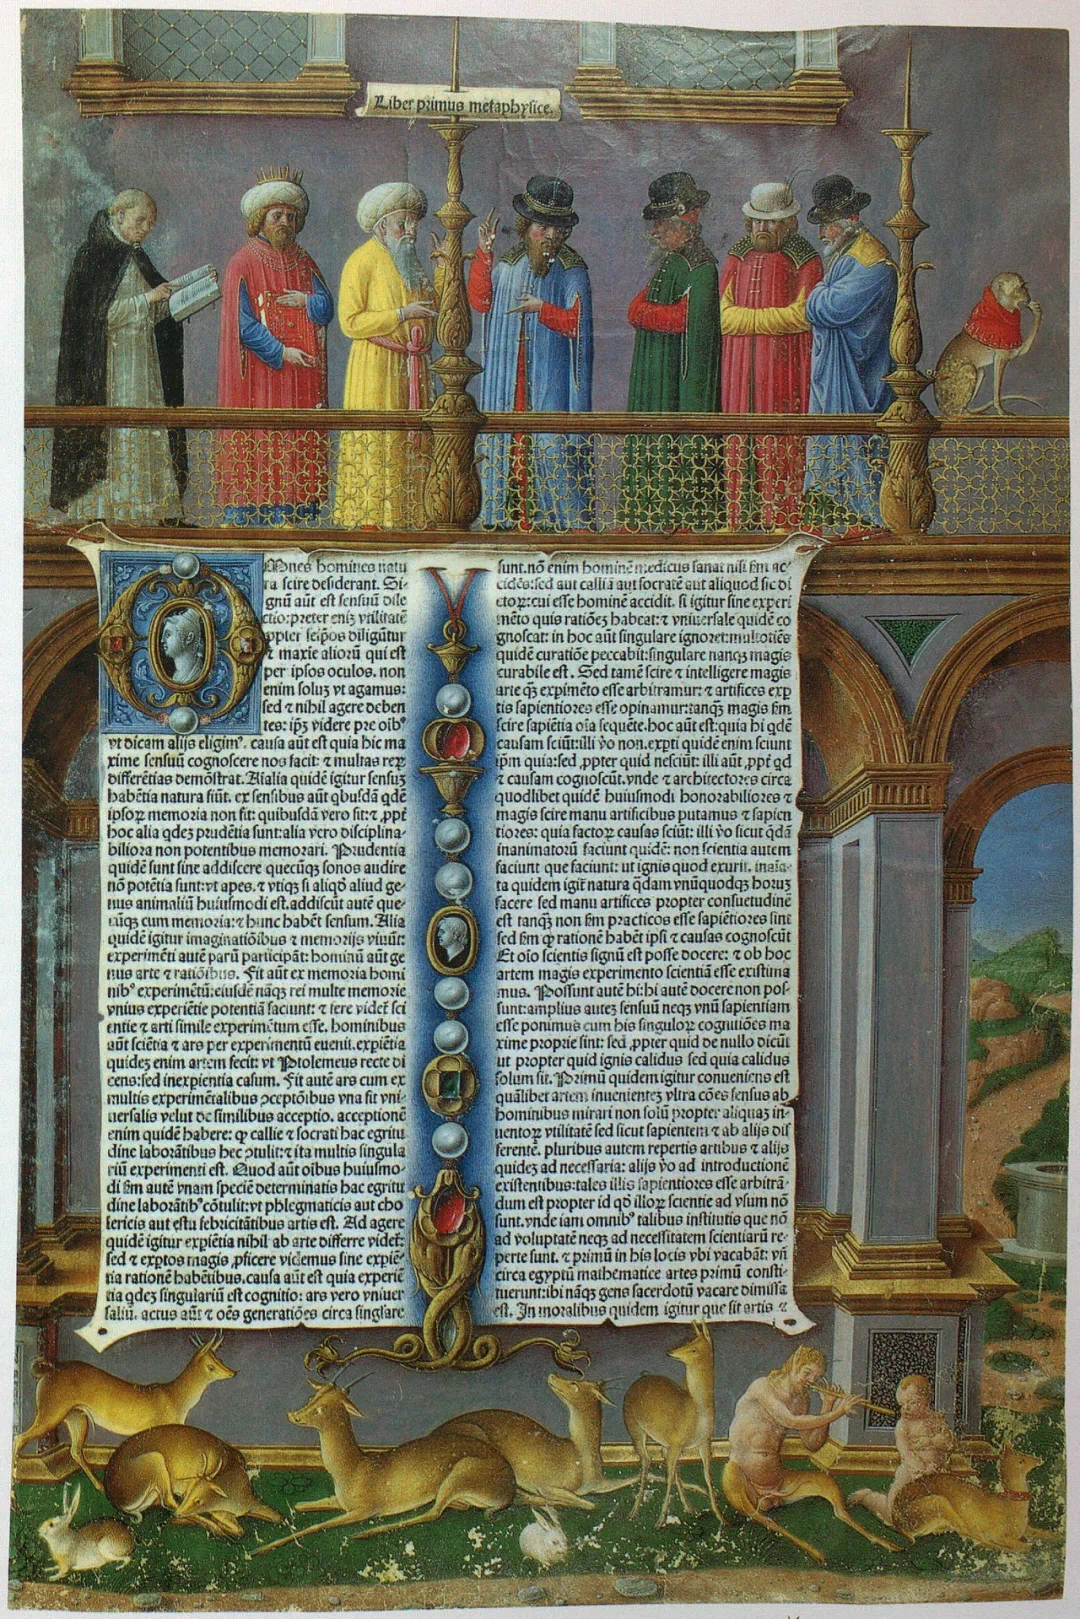 Liber primus metaphysice.
OMnes homines natu
ra scire desiderant. Si-
gnū aūt est sensuū dile
ctio: preter eniȝ vtilitatē
ꝓpter seip̄os diligūtur
⁊ maxīe aliorū qui est
per ip̄sos oculos. non
enim soluȝ vt agamus:
sed ⁊ nihil agere deben
tes: ip̄ȝ videre pre oīb⁹
vt dicam alijs eligim⁹. causa aūt est quia hic ma
xime sensuū cognoscere nos facit: ⁊ multas reꝝ
differētias demōstrat. Aīalia quidē igitur sensuȝ
habētia natura fiūt. ex sensibus aūt qbusdā qdē
ipsoꝝ memoria non fit: quibusdā vero fit: ⁊ ꝓpt̄
hoc alia qdeȝ prudētia sunt: alia vero disciplina-
biliora non potentibus memorari. Prudentia
quidē sunt sine addiscere quecūqȝ sonos audire
nō potētia sunt: vt apes. ⁊ vtiqȝ si aliqđ aliud ge-
nus animaliū huiusmodi est. addiscūt autē que-
cūqȝ cum memoria: ⁊ hunc habēt sensum. Alia
quidē igitur imaginatiōibus ⁊ memorijs viuūt:
experimēti autē parū participāt: hominū aūt ge
nus arte ⁊ ratiōibus. Fit aūt ex memoria homi
nib⁹ experimētū: eiusdē nāqȝ rei multe memorie
vnius experiētie potentiā faciunt: ⁊ fere videt̄ sci
entie ⁊ arti simile experimētum esse. hominibus
aūt scīetia ⁊ ars per experimentū euenit. expiētia
quideȝ enim artem fecit: vt Ptolemeus recte di
cens: sed inexpientia casum. Fit autē ars cum ex
multis experimētalibus ꝯceptōibus vna fit vni-
uersalis velut de similibus acceptio. acceptionē
enim quidē habere: ꝙ callie ⁊ socrati hac egritu
dine laborātibus hec ꝯtulit: ⁊ ita multis singula
riū experimenti est. Quod aūt oibus huiusmo-
di s̄m autē vnam speciē determinatis hac egritu
dine laborātib⁹ cōtulit: vt phlegmaticis aut cho
lericis aut estu febricitātibus artis est. Ad agere
quidē igitur expiētia nihil ab arte differre videt̄:
sed ⁊ exptos magis ꝓficere videmus sine expiē-
tia rationē habētibus. causa aūt est quia experiē
tia qdeȝ singulariū est cognitio: ars vero vniuer
saliū. actus aūt ⁊ oēs generatiōes circa singlare
sunt. nō enim hominē medicus sanat nisi s̄m ac-
cidēs: sed aut calliā aut socratē aut aliquod sic di
ctoꝝ: cui esse hominē accidit. si igitur sine experi
mēto quis ratiōeȝ habeat: ⁊ vniuersale quidē co
gnoscat: in hoc aūt singulare ignoret: multotiēs
quidē curatiōe peccabit: singulare nanqȝ magis
curabile est. Sed tamē scire ⁊ intelligere magis
arte qȝ expimēto esse arbitramur: ⁊ artifices exp
tis sapientiores esse opinamur: tanqȝ magis s̄m
scire sapiētia oīa sequēte. hoc aūt est: quia hi qdē
causam sciūt: illi ꝟo non. expti quidē enim sciunt
ip̄m quia: sed ꝓpter quid nesciūt: illi aūt ꝓpt̄ qđ
⁊ causam cognoscūt. vnde ⁊ architectores circa
quodlibet quidē huiusmodi honorabiliores ⁊
magis scire manu artificibus putamus ⁊ sapien
tiores: quia factoꝝ causas sciūt: illi ꝟo sicut qdā
inanimatorū faciunt quidē: non scientia autem
faciunt que faciunt: ut ignis quod exurit. inaīa-
ta quidem igit̄ natura qdam vnūquodqȝ horuȝ
facere sed manu artifices propter consuetudinē
est tanqȝ non s̄m practicos esse sapiētiores sint
sed s̄m ꝙ rationē habēt ipsi ⁊ causas cognoscūt
Et oīo scientis signū est posse docere: ⁊ ob hoc
artem magis experimento scientiā esse existima
mus. Possunt autē hi: hi autē docere non pos-
sunt: amplius auteȝ sensuū neqȝ vnū sapientiam
esse ponimus cum his singuloꝝ cognitiōes ma
xime proprie sint: sed ꝓpter quid de nullo dicūt
ut propter quid ignis calidus sed quia calidus
solum sit. Primū quidem igitur conueniens est
quālibet artem inuenienteȝ vltra cōes sensus ab
hominibus mirari non solū propter aliquaȝ in-
uentoꝝ vtilitatē sed sicut sapientem ⁊ ab alijs dif
ferentē. pluribus autem repertis artibus ⁊ alijs
quideȝ ad necessaria: alijs ꝟo ad introductionē
existentibus: tales illis sapientiores esse arbitrā-
dum est propter id qđ illoꝝ scientie ad vsum nō
sunt. vnde iam omnib⁹ talibus institutis que nō
ad voluptatē neqȝ ad necessitatem scientiarū re-
perte sunt. ⁊ primū in his locis vbi vacabāt: vn̄
circa egyptū mathematice artes primū consti-
tuerunt: ibi nāqȝ gens sacerdotū vacare dimissa
est. In moralibus quidem igitur que sit artis ⁊